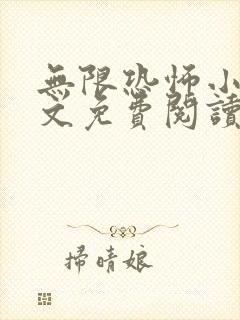 無限恐怖小
文免費閱讀
掃晴娘